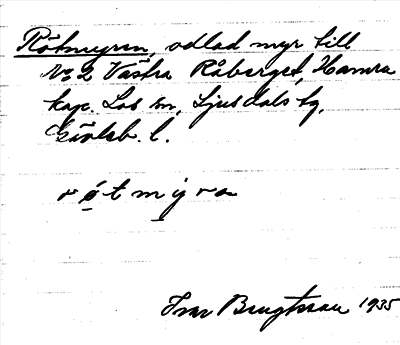 Rötmyran, odlad myr till
No 2 Västra Råberget, Hamra
kap. Los sn, Ljusdals tg,
Gävleb. l.
r ö t m y r a
Ivar Bengtsson 1935